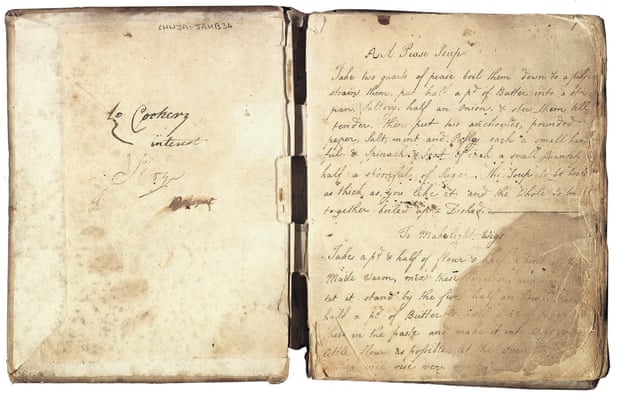 CHWJA: JAHB34
to Cookery
interest
A A Pease Soup
Take two quarts of pease boil them down to a pulp
strain them, put half a pd of Butter into a
pan, Sallory, half an Onion, & stew them till
tender. Then put two anchovies, pounded
peper, Salt, mint and each a small han
ful & Spinach, & of each a small quantity
half a spoonful of Suger. The Soup to be boiled
as thick as you like it and the whole
together boiled up & Dished.
To Make light Wigs
Take a pd & half of flour & half a
Made warm, mix these together
let it stand by the fire half an hour
half a pd of Butter
these in the paste and make it into
little flour as possible let the oven
they will rise very